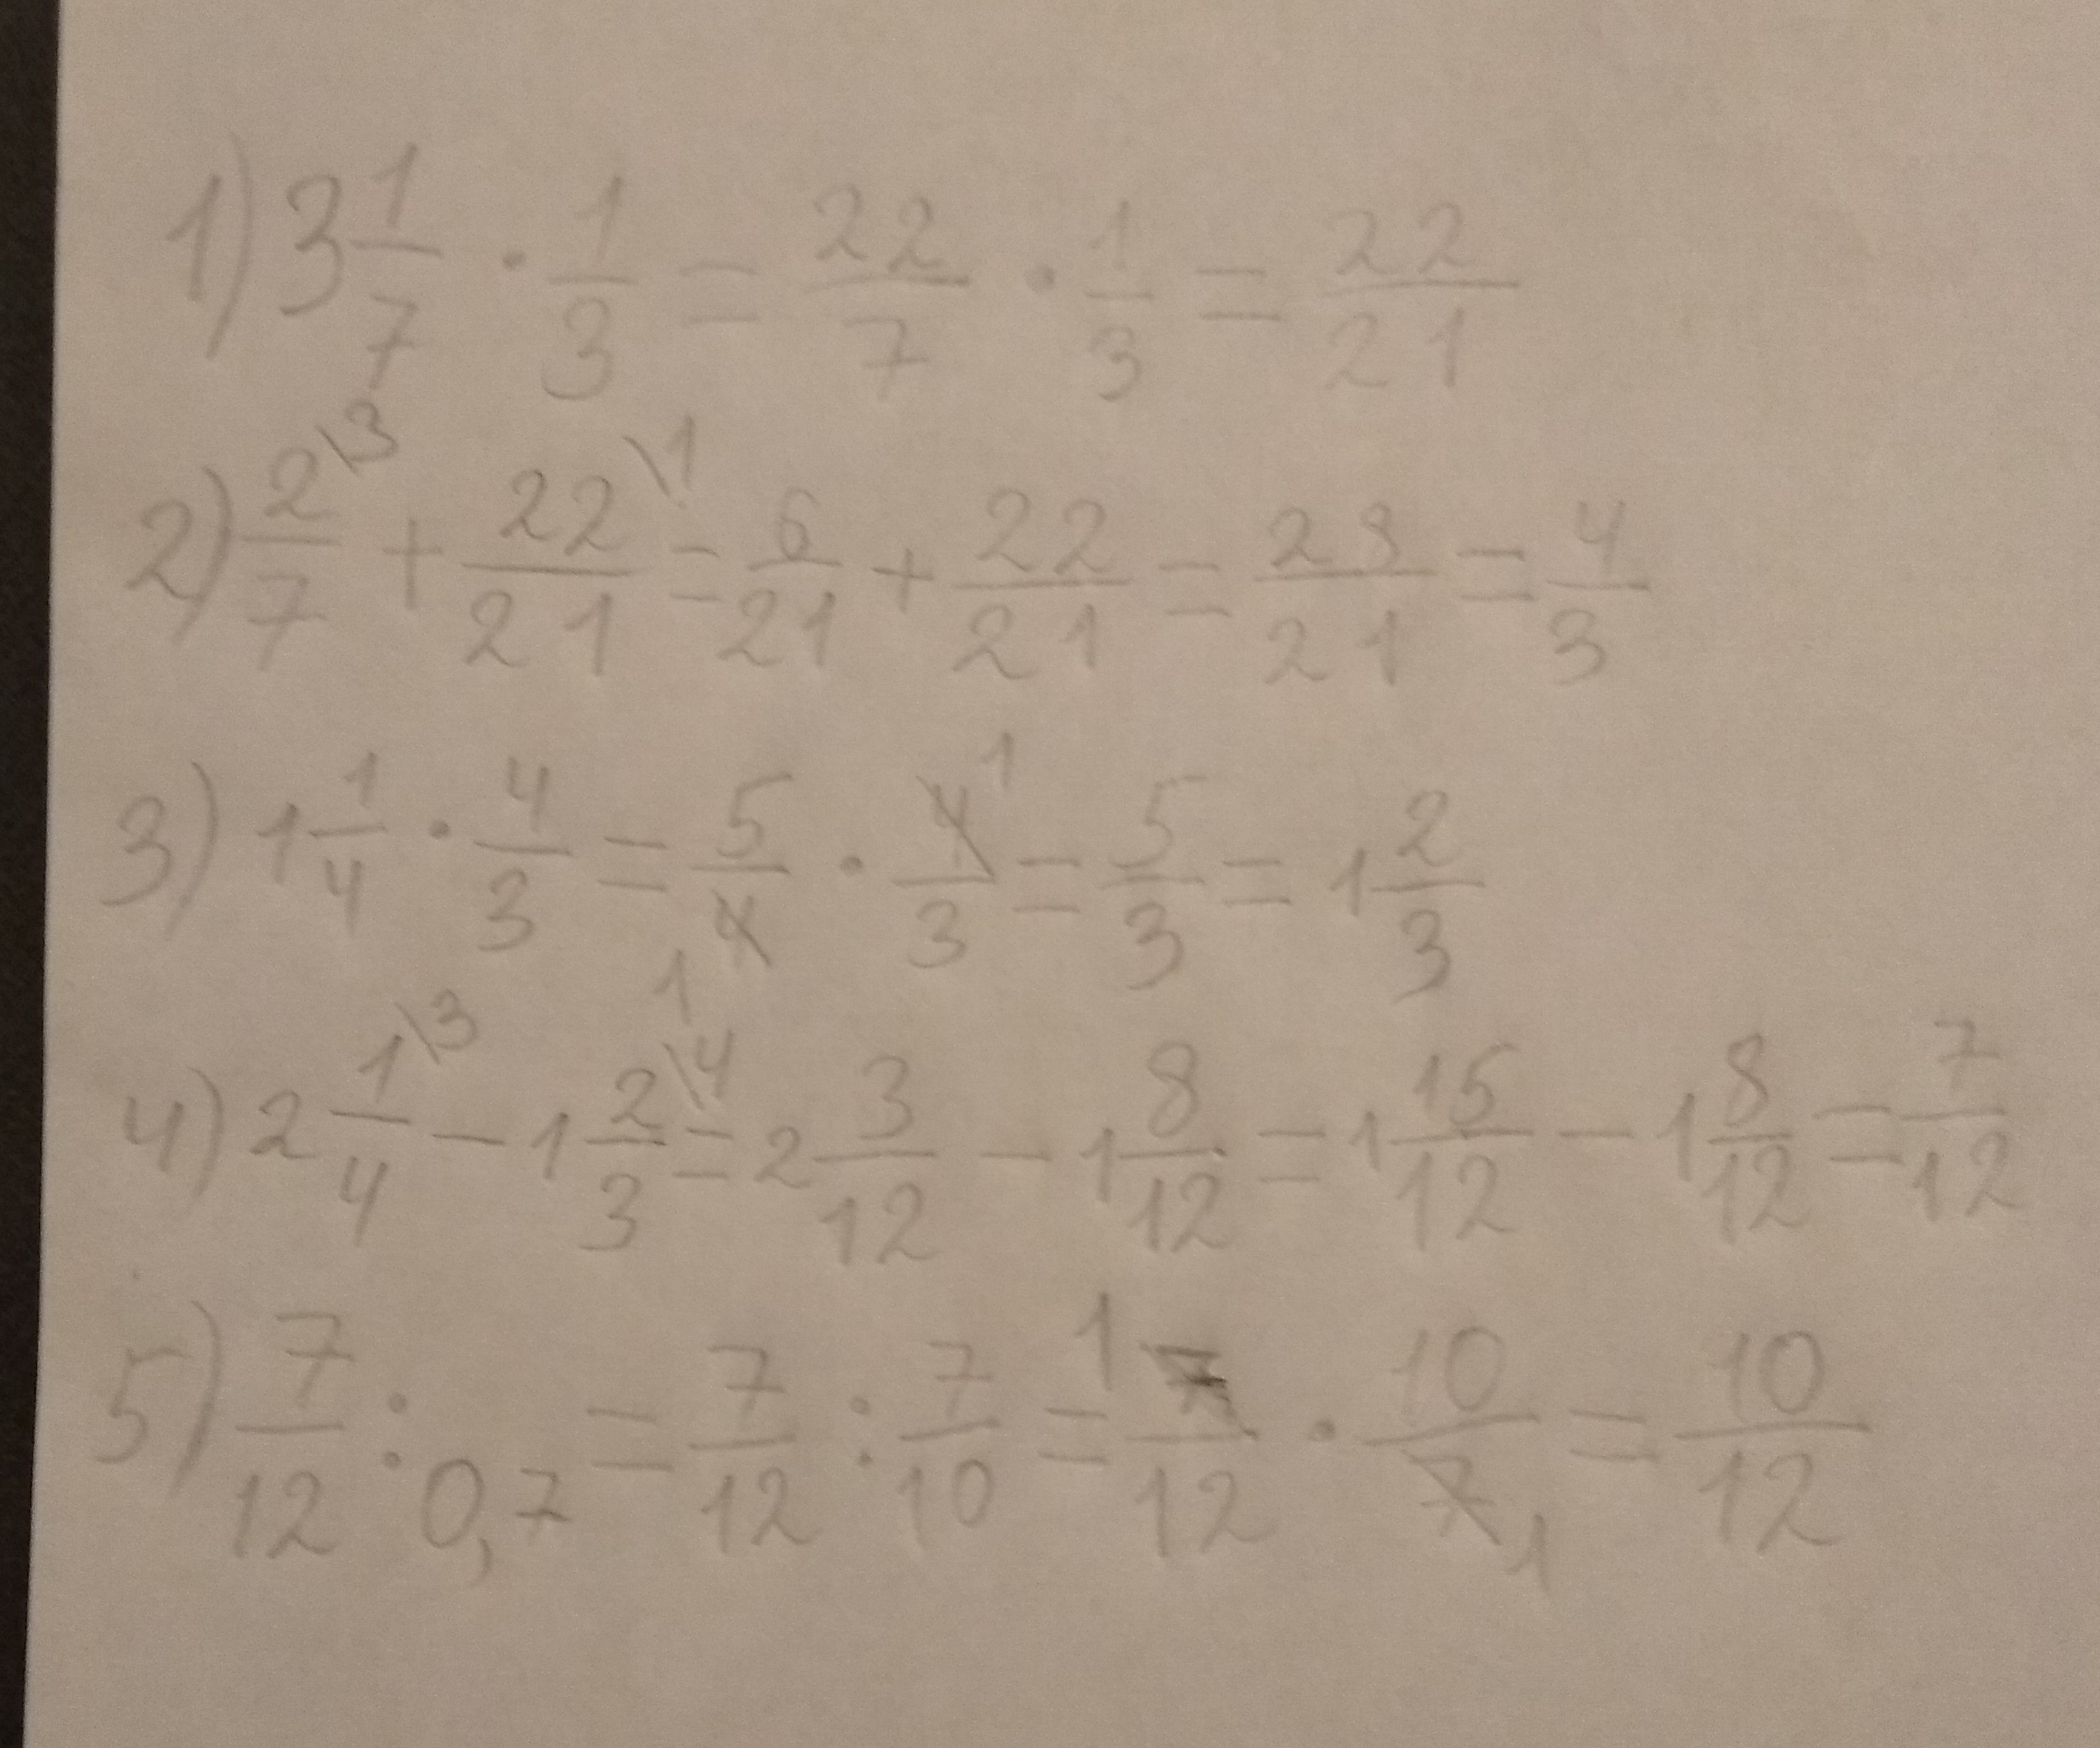 1) 3 1/7 · 1/3 = 22/7 · 1/3 = 22/21
2) 2\3/7 + 22\1/21 = 6/21 + 22/21 = 28/21 = 4/3
3) 1 1/4 · 4/3 = 5/4 1 · 4 1/3 = 5/3 = 1 2/3
4) 2 1\3/4 - 1 2\4/3 = 2 3/12 - 1 8/12 = 1 15/12 - 1 8/12 = 7/12
5) 7/12 : 0,7 = 7/12 : 7/10 = 1 7/12 · 10/7 1 = 10/12